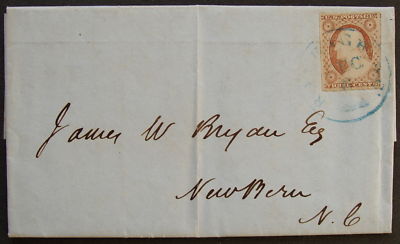 U.S. POSTAGE
THREE CENTS
James W Bryan Esq
NewBern
N. C